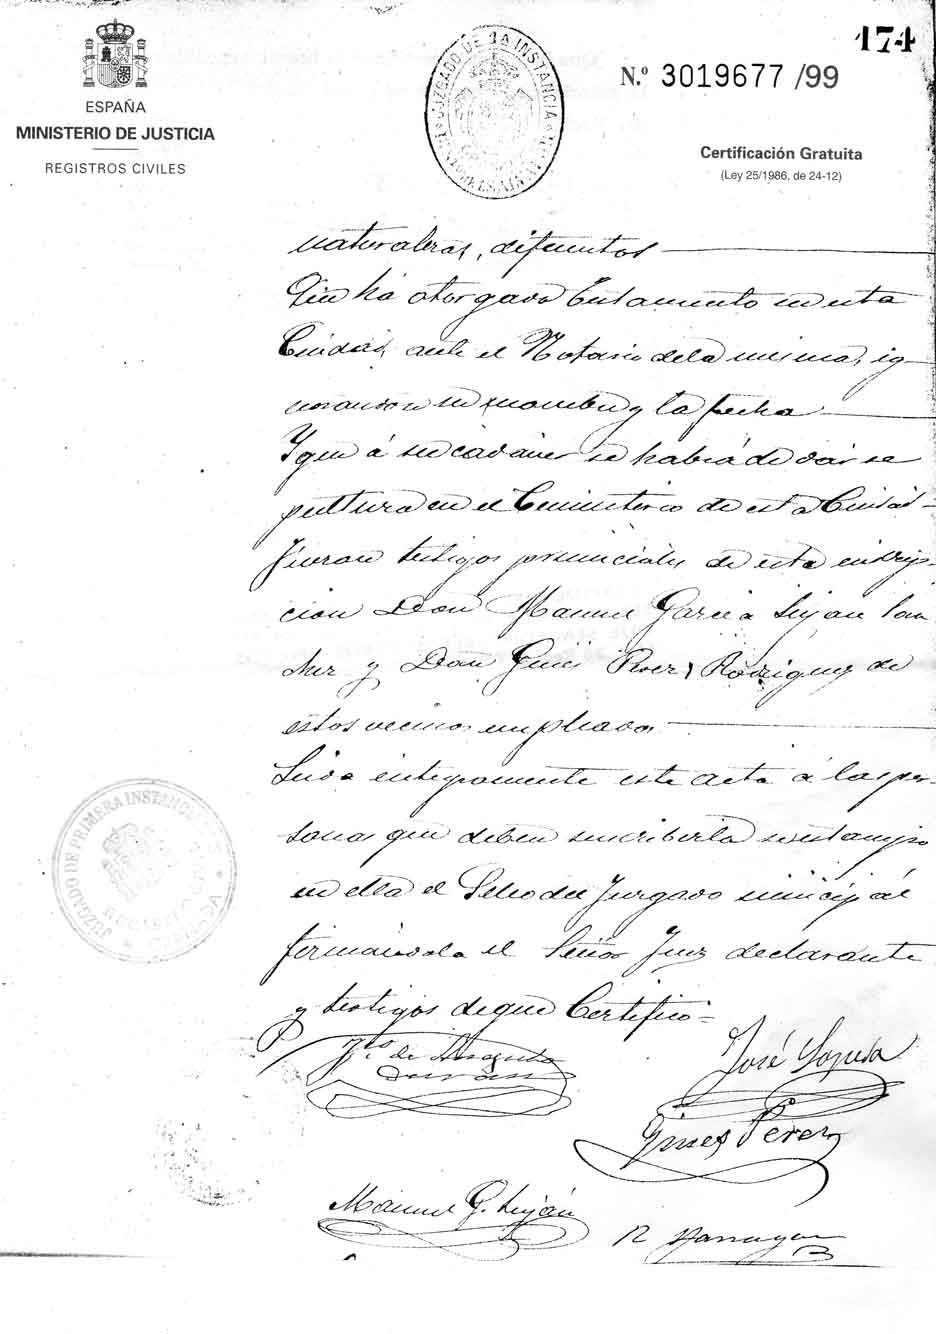 174
N.º 3019677 /99
ESPAÑA
MINISTERIO DE JUSTICIA
REGISTROS CIVILES
JUZGADO DE 1A INSTANCIA
Certificación Gratuita
(Ley 25/1986, de 24-12)
naturaleras, difuntos
Que há otorgado testamento en esta
Ciudad, ante el Notario de la misma, ig-
norandose su nombre y la fecha
Y que á su cadáver se habrá de dar se
pultura en el Cementerio de esta Ciudad-
Fueron testigos presenciales de esta inscrip-
cion Don Manuel Garcia Lujan San
chez y Don Ginés Perez Rodriguez de
estos vecinos empleados
Leida integramente este acta á las per-
sonas que deben suscribirla se estampo
en ella el Sello del Juzgado municipal
firmandola el Señor Juez declarante
y testigos de que Certifico=
JUZGADO DE PRIMERA INSTANCIA
José Lopera
Ginés Pérez
Manuel G. Luján